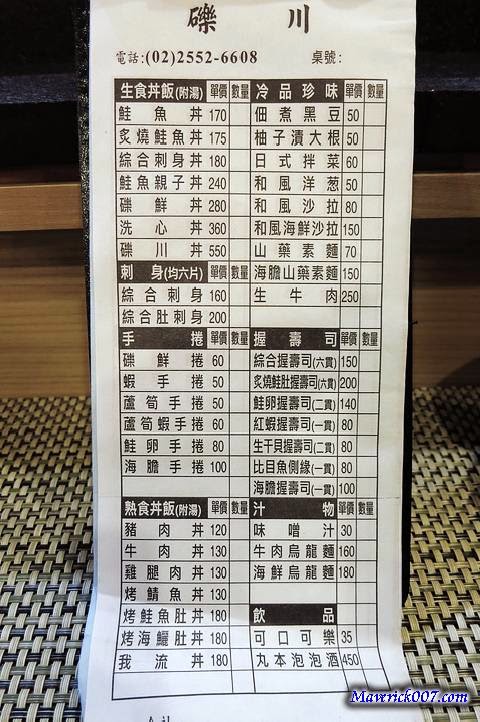 礫川
電話:(02)2552-6608 桌號:
生食丼飯(附湯) 單價 數量
鮭魚丼 170
炙燒鮭魚丼 175
綜合刺身丼 180
鮭魚親子丼 240
礫鮮丼 280
洗心丼 360
礫川丼 550
刺身(均六片) 單價 數量
綜合刺身 160
綜合肚刺身 200
手捲 單價 數量
礫鮮捲 60
蝦手捲 50
蘆筍手捲 50
蘆筍蝦手捲 60
鮭卵手捲 80
海膽手捲 100
熟食丼飯(附湯) 單價 數量
豬肉丼 120
牛肉丼 130
雞腿肉丼 130
烤鯖魚丼 130
烤鮭魚肚丼 180
烤海鱺肚丼 180
我流丼 180
冷品珍味 單價 數量
佃煮黑豆 50
柚子漬大根 50
日式拌菜 60
和風洋葱 50
和風沙拉 80
和風海鮮沙拉 150
山藥素麵 70
海膽山藥素麵 150
生牛肉 250
握壽司 單價 數量
綜合握壽司(六貫) 150
炙燒鮭肚握壽司(六貫) 200
鮭卵握壽司(二貫) 140
紅蝦握壽司(一貫) 80
生干貝握壽司(二貫) 80
比目魚側緣(一貫) 80
海膽握壽司(一貫) 100
汁物 單價 數量
味噌汁 30
牛肉烏龍麵 160
海鮮烏龍麵 180
飲品
可口可樂 35
丸本泡泡酒 450
Maverick007.com